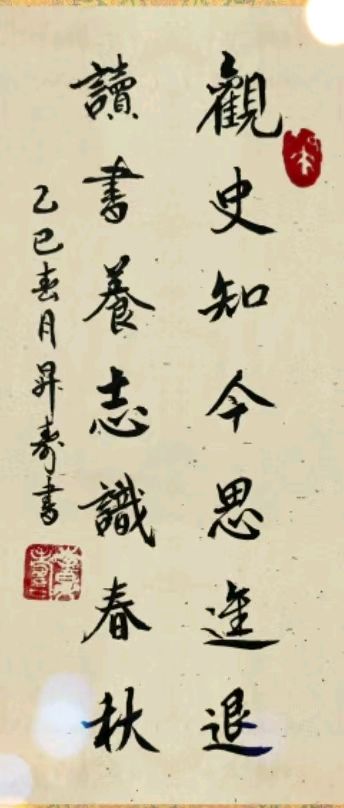 觀史知今思進退
讀書養志識春秋
乙巳春月昇壽書